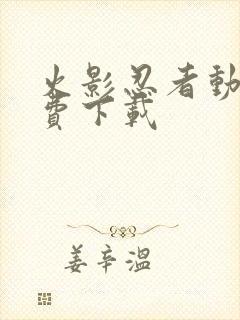 火影忍者動
費下載
姜辛溫